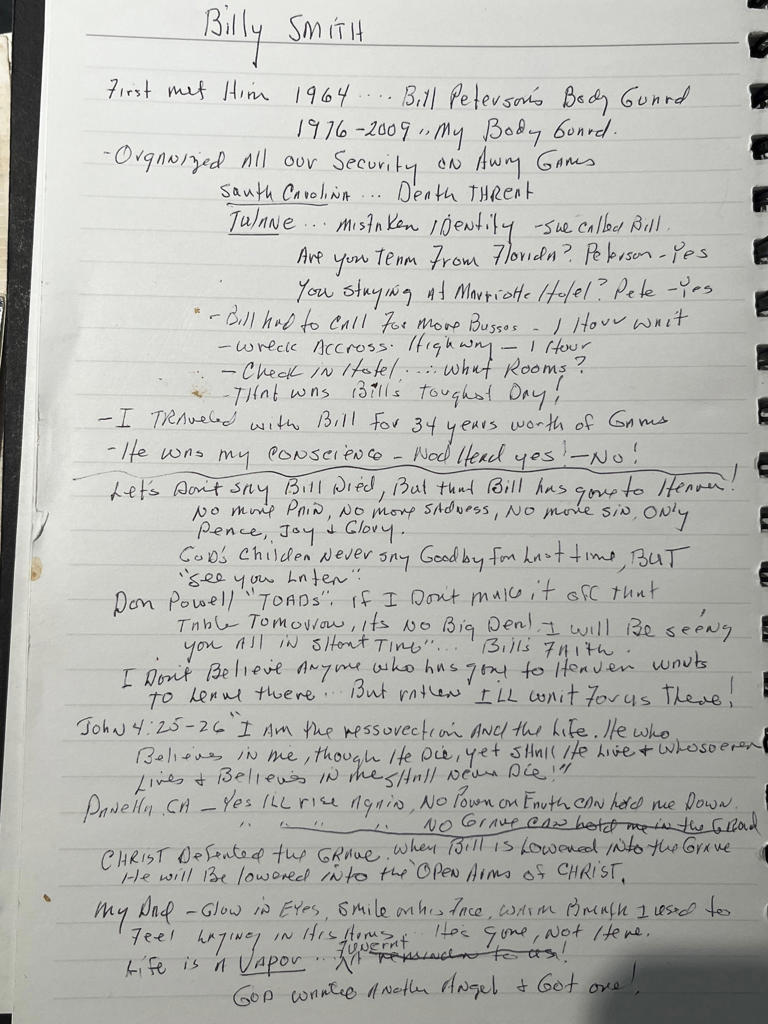 Billy SMITH
First met Him 1964 .... Bill Peterson's Body Guard
1976-2009 .. My Body Guard.
- Organized All our Security on Away Games
South Carolina ... Death THReat
Tulane ... mistaken identity - Sue called Bill.
Are you Team From Florida? Peterson - Yes
You staying at Marriotte Hotel? Pete - Yes
- Bill had to call For more Busses - 1 Hour wait
- wreck Accross Highway - 1 Hour
- Check in Hotel .... what Rooms?
- THat was Bill's Toughest Day!
- I TRaveled with Bill for 34 years worth of Games
- He was my conscience - Nod Head yes! - No!
Let's Don't say Bill Died, But that Bill has gone to Heaven!
No more Pain, No more Sadness, No more sin, Only
Peace, Joy & Glory.
God's Children Never say Goodby for Last time, BUT
"see you Later".
Don Powell "TOADS". if I Don't make it off that
Table Tomorrow, its No Big Deal. I will Be seeing
you All in SHort Time" ... Bill's Faith.
I Don't Believe Anyone who has gone to Heaven wants
To Leave there ... But rather I'LL wait For us There!
John 4:25-26 "I Am the ressurection And the Life. He who
Believes in me, though He Die, yet SHall He Live & whosoever
Lives & Believes in me SHall Never Die!"
CA - Yes ILL rise Again, No Power on Earth CAN hold me Down.
" " " " No Grave CAN hold me in the Ground
CHRIST Defeated the GRave. when Bill is Lowered into the Grave
He will Be lowered into the OPEN Arms of CHRIST.
My Dad - Glow in Eyes, Smile on his Face, warm Breath I used to
Feel Laying in His Arms ... He's gone, Not Here.
Life is A Vapor ... Funeral reminder to us!
God wanted Another Angel & Got one!